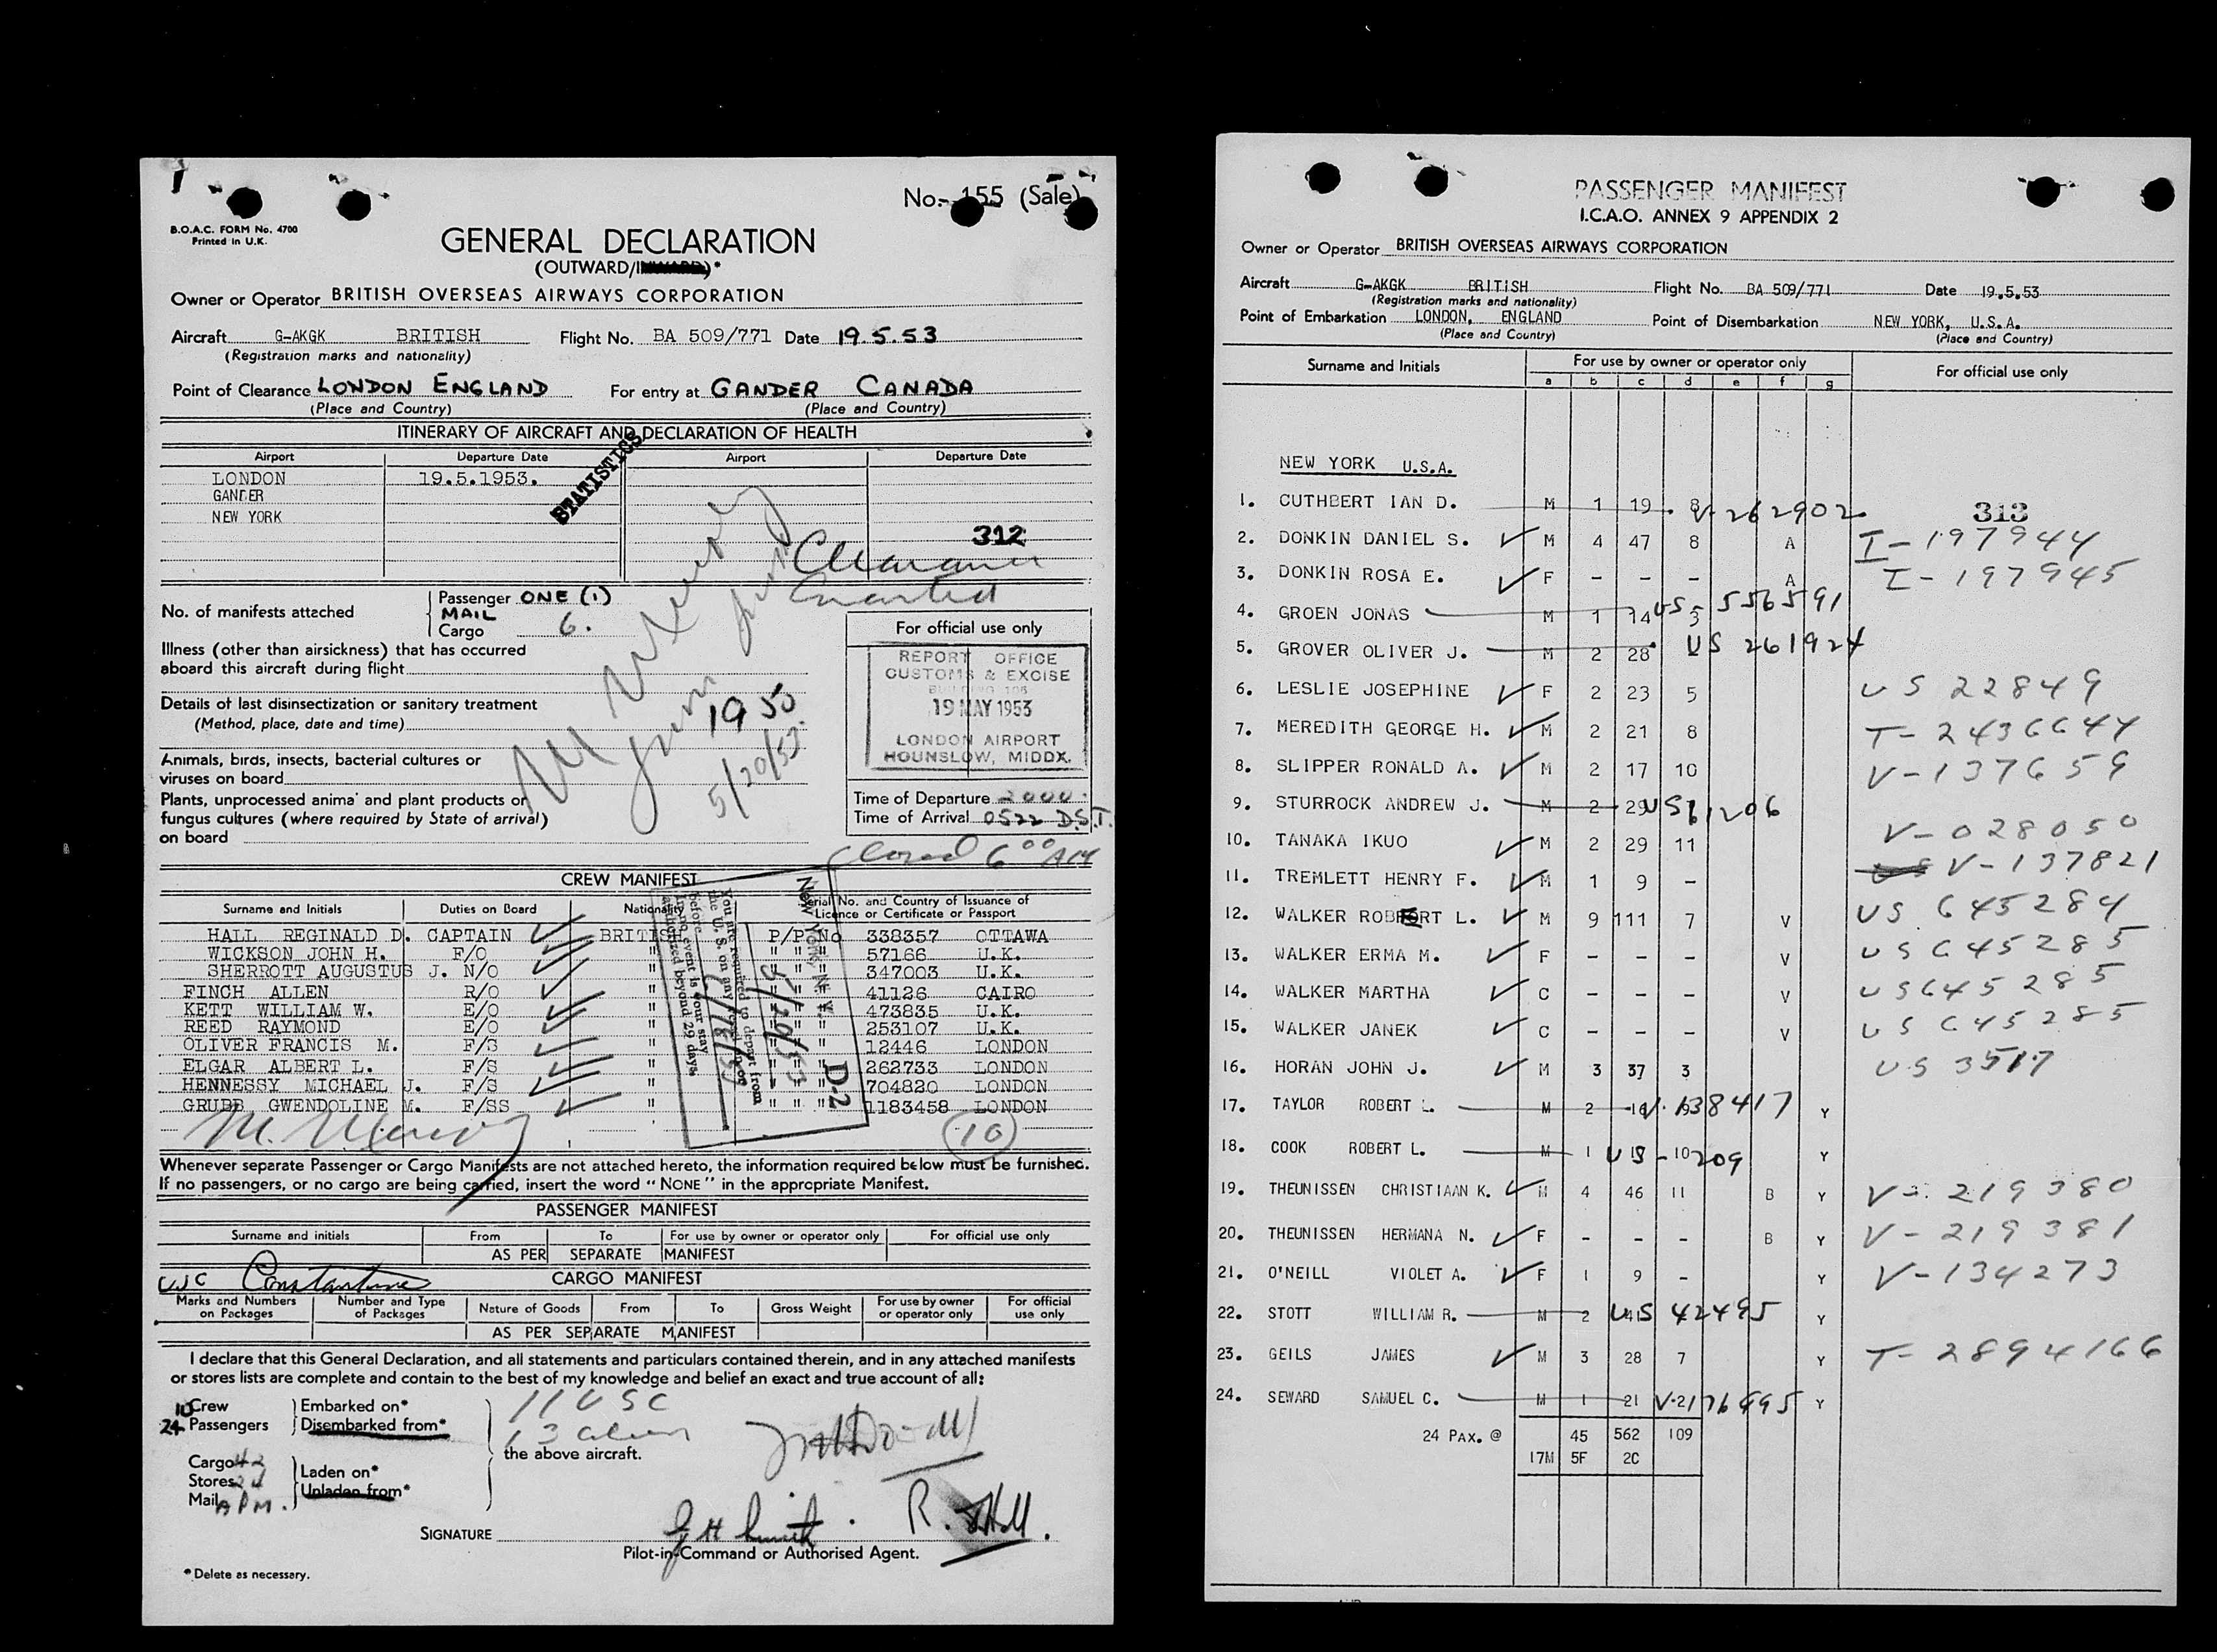 No. 155 (Sale)
B.O.A.C. FORM No. 4700
Printed in U.K.
GENERAL DECLARATION
(OUTWARD/INWARD)*
Owner or Operator BRITISH OVERSEAS AIRWAYS CORPORATION
Aircraft G-AKGK BRITISH Flight No. BA 509/771 Date 19.5.53
(Registration marks and nationality)
Point of Clearance LONDON ENGLAND For entry at GANDER CANADA
(Place and Country) (Place and Country)
ITINERARY OF AIRCRAFT AND DECLARATION OF HEALTH
Airport Departure Date Airport Departure Date
LONDON 19.5.1953.
GANDER
NEW YORK
STATISTICS
312
Clearance
Granted
No. of manifests attached
Passenger ONE (1)
MAIL
Cargo 6.
Illness (other than airsickness) that has occurred
aboard this aircraft during flight
Details of last disinsectization or sanitary treatment
(Method, place, date and time)
Animals, birds, insects, bacterial cultures or
viruses on board
Plants, unprocessed animal and plant products or
fungus cultures (where required by State of arrival)
on board
1950
5/20/53
For official use only
REPORT OFFICE
CUSTOMS & EXCISE
BUILDING 106
19 MAY 1953
LONDON AIRPORT
HOUNSLOW, MIDDX.
Time of Departure 2000.
Time of Arrival 0522 D.S.T.
Closed 6 00 AM
CREW MANIFEST
Surname and Initials Duties on Board Nationality Serial No. and Country of Issuance of
Licence or Certificate or Passport
HALL REGINALD D. CAPTAIN BRITISH P/P No 338357 OTTAWA
WICKSON JOHN H. F/O " " " " 57166 U.K.
SHERROTT AUGUSTUS J. N/O " " " " 347003 U.K.
FINCH ALLEN R/O " " " " 41126 CAIRO
KETT WILLIAM W. E/O " " " " 473835 U.K.
REED RAYMOND E/O " " " " 253107 U.K.
OLIVER FRANCIS M. F/S " " " " 12446 LONDON
ELGAR ALBERT L. F/S " " " " 262733 LONDON
HENNESSY MICHAEL J. F/S " " " " 704820 LONDON
GRUBB GWENDOLINE M. F/SS " " " " 1183458 LONDON
(10)
New York, N.Y.
5/20/53
D-2
You are required to depart from
the U. S. on any vessel on or
before 6/18/53
In no event is your stay
authorized beyond 29 days.
Whenever separate Passenger or Cargo Manifests are not attached hereto, the information required below must be furnished.
If no passengers, or no cargo are being carried, insert the word "NONE" in the appropriate Manifest.
PASSENGER MANIFEST
Surname and initials From To For use by owner or operator only For official use only
AS PER SEPARATE MANIFEST
Constantine
CARGO MANIFEST
Marks and Numbers on Packages Number and Type of Packages Nature of Goods From To Gross Weight For use by owner or operator only For official use only
AS PER SEPARATE MANIFEST
I declare that this General Declaration, and all statements and particulars contained therein, and in any attached manifests
or stores lists are complete and contain to the best of my knowledge and belief an exact and true account of all:
10 Crew Embarked on*
24 Passengers Disembarked from*
11 USC
13 alien
the above aircraft.
Cargo 42
Stores 24
Mail
Laden on*
Unladen from*
SIGNATURE
Pilot-in-Command or Authorised Agent.
*Delete as necessary.
PASSENGER MANIFEST
I.C.A.O. ANNEX 9 APPENDIX 2
Owner or Operator BRITISH OVERSEAS AIRWAYS CORPORATION
Aircraft G-AKGK BRITISH Flight No. BA 509/771 Date 19.5.53
(Registration marks and nationality)
Point of Embarkation LONDON, ENGLAND Point of Disembarkation NEW YORK, U.S.A.
(Place and Country) (Place and Country)
Surname and Initials For use by owner or operator only For official use only
a b c d e f g
NEW YORK U.S.A.
313
1. CUTHBERT IAN D. M 1 19 8 V-262902
2. DONKIN DANIEL S. M 4 47 8 A I-197944
3. DONKIN ROSA E. F - - - A I-197945
4. GROEN JONAS M 1 14 3 US 556591
5. GROVER OLIVER J. M 2 28 US 261924
6. LESLIE JOSEPHINE F 2 23 5 US 22849
7. MEREDITH GEORGE H. M 2 21 8 T-2436644
8. SLIPPER RONALD A. M 2 17 10 V-137659
9. STURROCK ANDREW J. M 2 29 US 61206
10. TANAKA IKUO M 2 29 11 V-028050
11. TREMLETT HENRY F. M 1 9 - V-137821
12. WALKER ROBERT L. M 9 111 7 V US 645284
13. WALKER ERMA M. F - - - V US 645285
14. WALKER MARTHA C - - - V US 645285
15. WALKER JANEK C - - - V US 645285
16. HORAN JOHN J. M 3 37 3 US 3517
17. TAYLOR ROBERT L. M 2 16 V-138417 Y
18. COOK ROBERT L. M 1 10 US-209 Y
19. THEUNISSEN CHRISTIAAN K. M 4 46 11 B Y V-219380
20. THEUNISSEN HERMANA N. F - - - B Y V-219381
21. O'NEILL VIOLET A. F 1 9 - Y V-134273
22. STOTT WILLIAM R. M 2 41 US 42495 Y
23. GEILS JAMES M 3 28 7 Y T-2894166
24. SEWARD SAMUEL C. M 1 21 V-2176495 Y
24 PAX. @ 45 562 109
17M 5F 2C